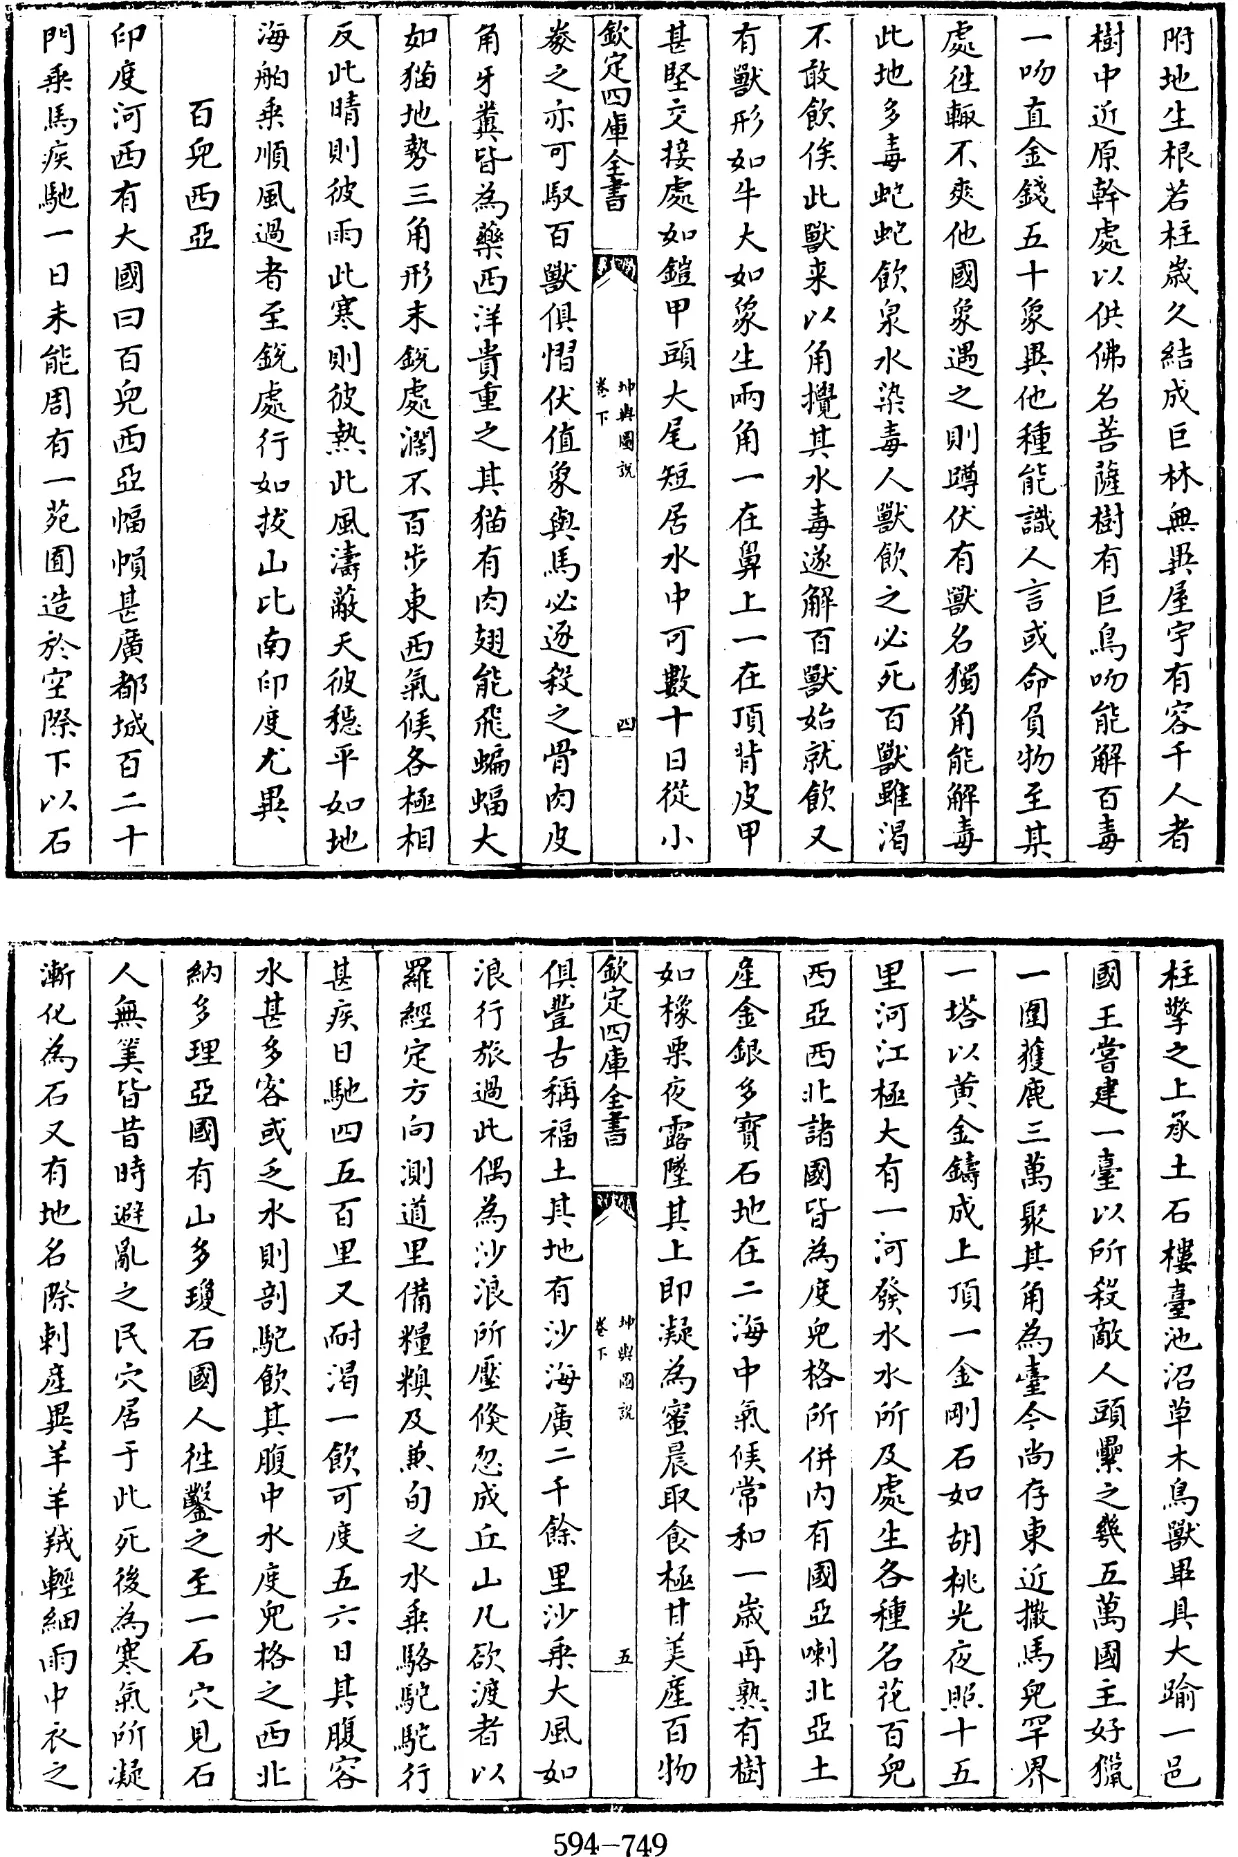 附地生根若柱歳久結成巨林無異屋宇有容千人者
樹中近原幹處以供佛名菩薩樹有巨鳥吻能解百毒
一吻直金錢五十象異他種能識人言或命負物至某
處徃輙不爽他國象遇之則蹲伏有獸名獨角能解毒
此地多毒蛇蛇飲泉水染毒人獸飲之必死百獸雖渴
不敢飲俟此獸来以角攪其水毒遂解百獸始就飲又
有獸形如牛大如象生兩角一在鼻上一在頂背皮甲
甚堅交接處如鎧甲頭大尾短居水中可數十日從小
欽定四庫全書
坤輿圖說
卷下
四
豢之亦可馭百獸俱慴伏值象與馬必逐殺之骨肉皮
角牙糞皆為藥西洋貴重之其猫有肉翅能飛蝙蝠大
如猫地勢三角形末銳處濶不百步東西氣候各極相
反此晴則彼雨此寒則彼熱此風濤蔽天彼穩平如地
海舶乘順風過者至銳處行如拔山比南印度尤異
百兒西亞
印度河西有大國曰百兒西亞幅幀甚廣都城百二十
門乘馬疾馳一日未能周有一苑囿造於空際下以石
柱擎之上承土石樓臺池沼草木鳥獸畢具大踰一邑
國王嘗建一臺以所殺敵人頭纍之幾五萬國主好獵
一圍獲鹿三萬聚其角為臺今尚存東近撒馬兒罕界
一塔以黄金鑄成上頂一金剛石如胡桃光夜照十五
里河江極大有一河發水水所及處生各種名花百兒
西亞西北諸國皆為度兒格所併内有國亞喇北亞土
產金銀多寶石地在二海中氣候常和一歳再熟有樹
如橡栗夜露墜其上即凝為蜜晨取食極甘美產百物
欽定四庫全書
坤輿圖說
卷下
五
俱豐古稱福土其地有沙海廣二千餘里沙乘大風如
浪行旅過此偶為沙浪所壓倏忽成丘山凡欲渡者以
羅經定方向測道里備糧糗及兼旬之水乘駱駝駝行
甚疾日馳四五百里又耐渴一飲可度五六日其腹容
水甚多客或乏水則剖駝飲其腹中水度兒格之西北
納多理亞國有山多瓊石國人徃鑿之至一石穴見石
人無筭皆昔時避亂之民穴居于此死後為寒氣所凝
漸化為石又有地名際剌產異羊羊羢輕細雨中衣之
594-749